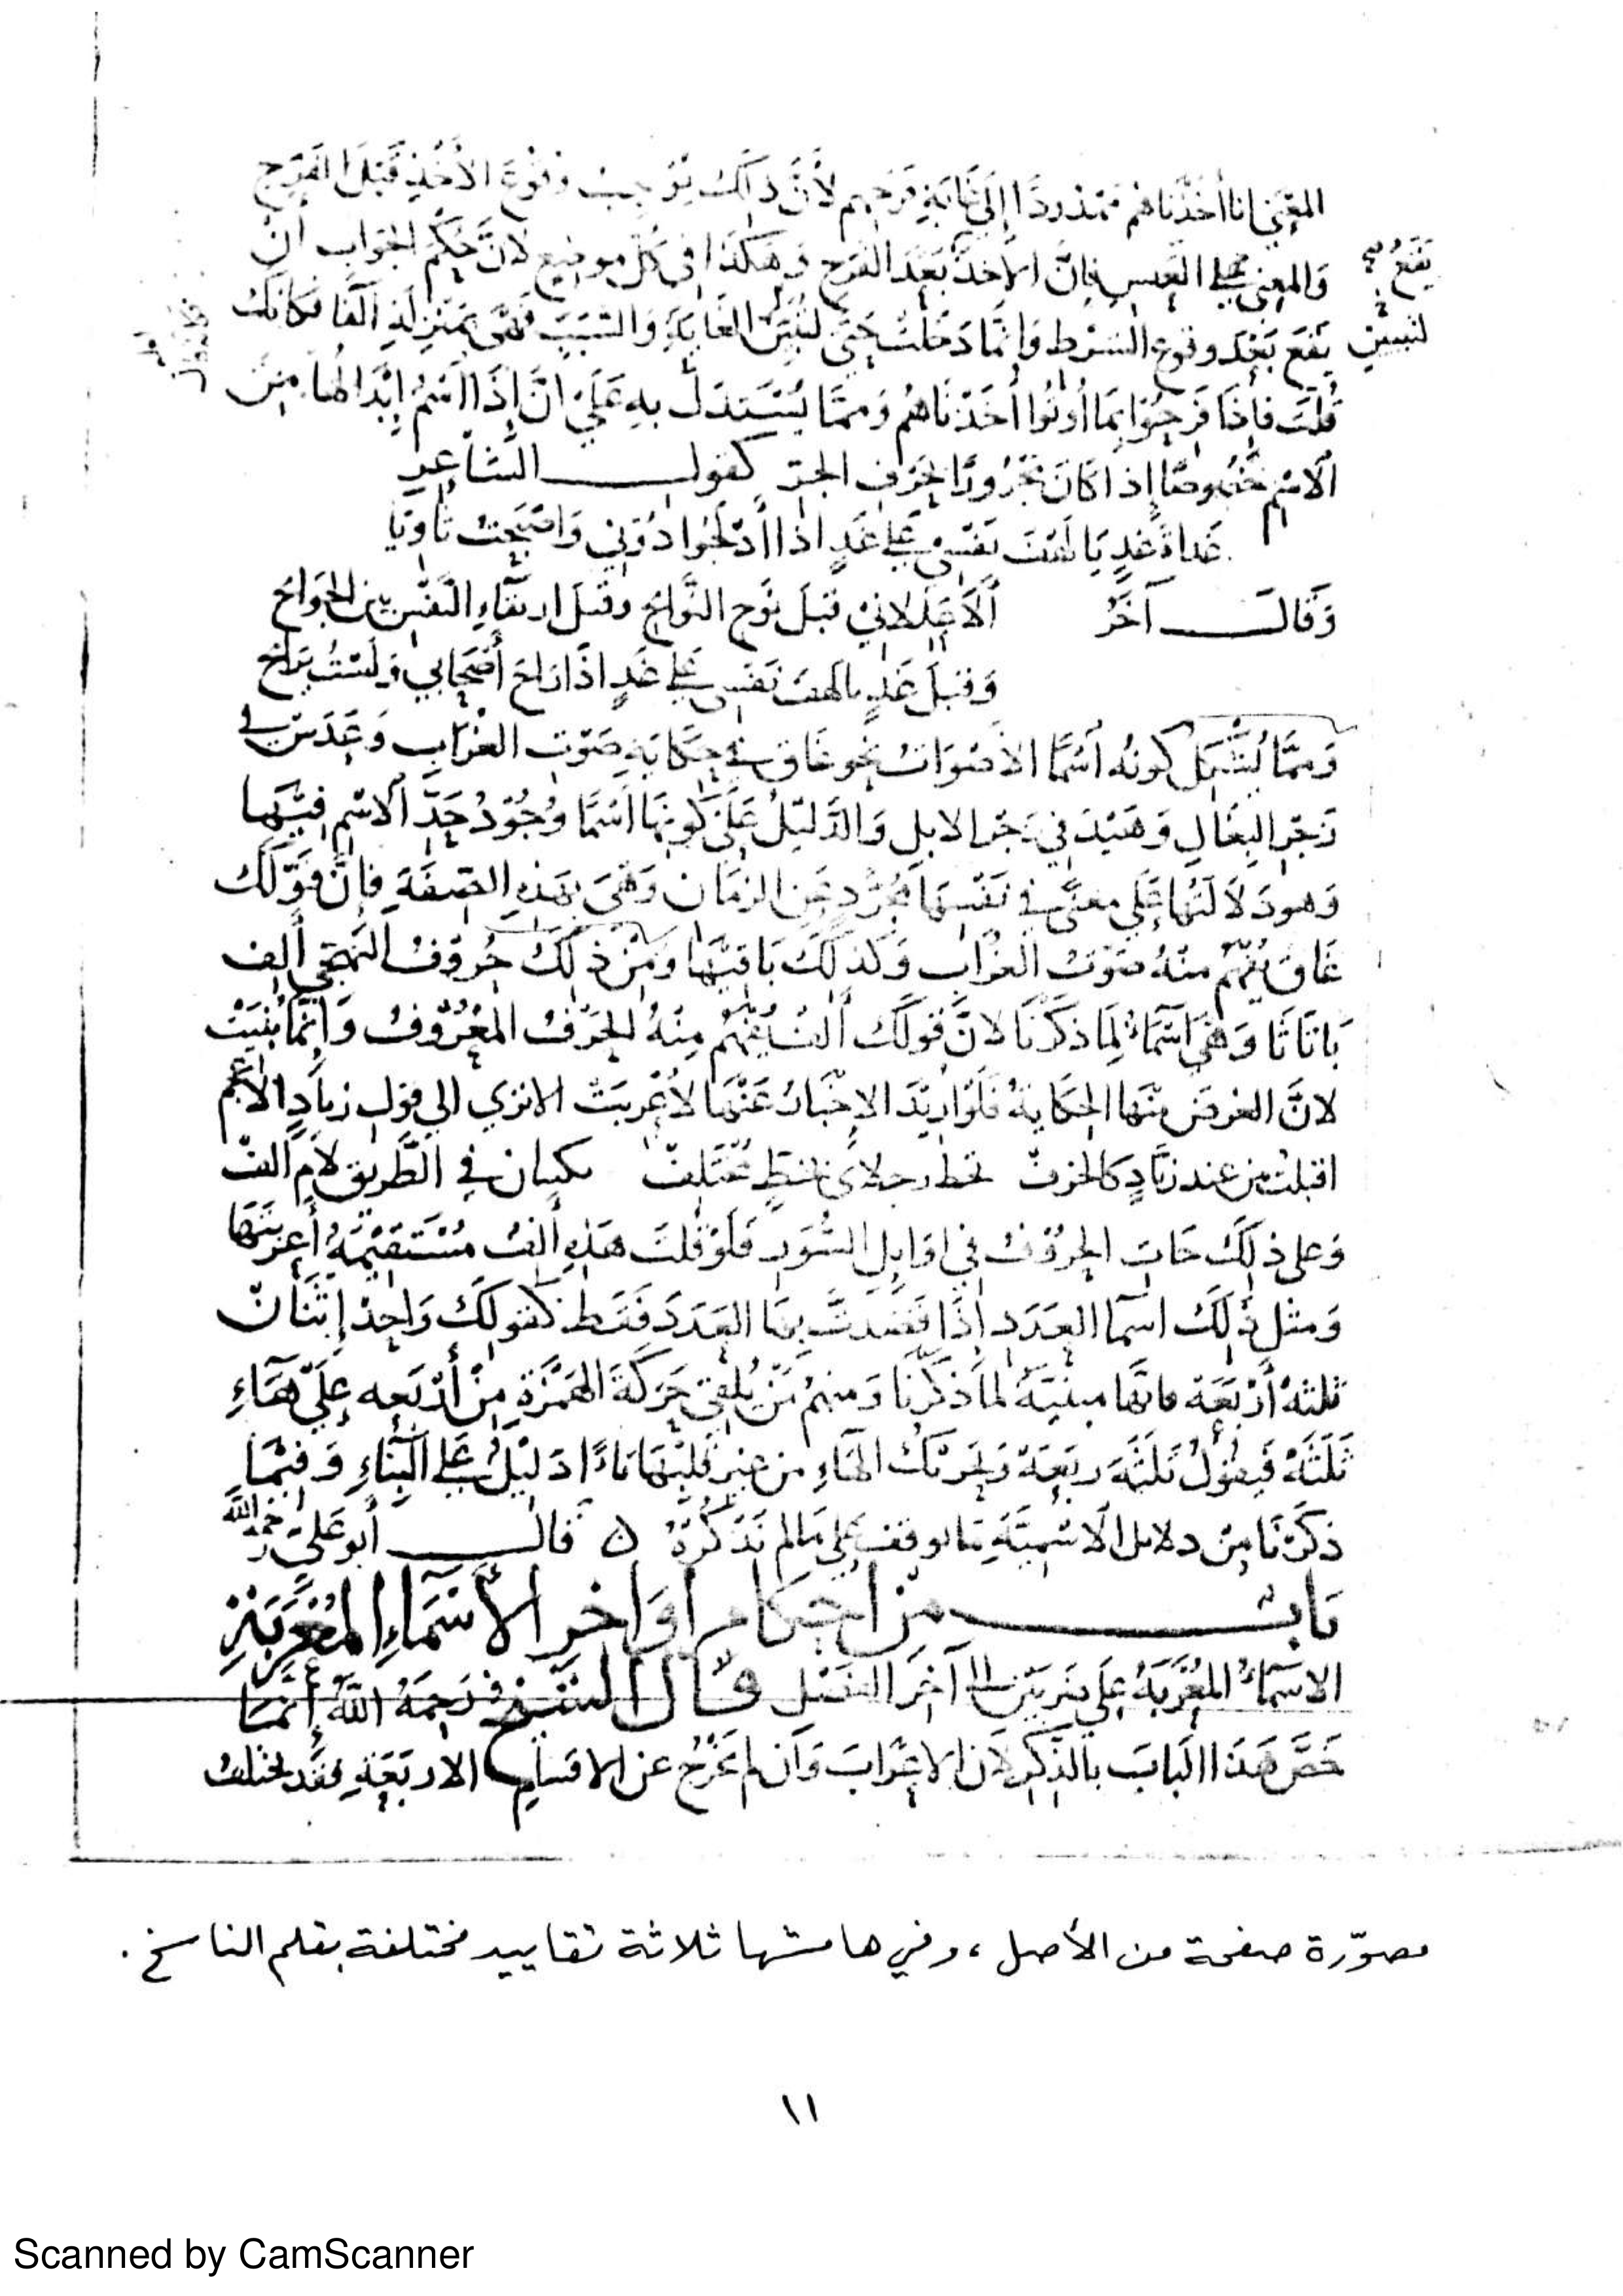 المعنى انا أخذناهم ممدودًا إلى غاية فرحهم لأنَّ ذلك يوجب وقوع الأخذ قبل الفرح
والمعنى على العكس فإنّ الأخذ بعد الفرح وهكذا في كل موضع لأنّ حكم الجواب أنْ
يقع بعد وقوع الشرط وانّما دخلت حتى لتبيّن الغاية والسبب فهي بمنزلة الفا فكانك
قلت فإذا فرحوا بما أوتوا أخذناهم وممّا يستدل به على انّ إذا اسم إبدالها من
الاسم خصوصًا إذا كان مجرورًا بحرف الجر كقول الشاعر
غداة غدٍ يا لهف نفسي على غدٍ اذا أدلجوا دوني واصبحت ثاويا
وقال آخر ألا عللاني قبل نوح النوائح وقبل ارتقاء النفس بين الجوانح
وقبل غدٍ يالهف نفسي على غدٍ اذا راح أصحابي ولستُ برائح
وممّا يُشكل كونه اسمًا الأصوات نحو غاق في حكاية صوت الغراب وعدس في
زجر البغال وهيد في زجر الابل والدّليل على كونها اسمًا وجود حدّ الاسم فيها
وهو دلالتها على معنى في نفسها مجرّد عن الزمان وهي بهذه الصفة فإنّ قولك
غاق يفهم منه صوت الغراب وكذلك باقيها ومن ذلك حروف التهجي ألف
با تا ثا وهي اسماء لما ذكرنا لانّ قولك ألف يفهم منه الحرف المعروف وإنّما بُنيت
لانّ الغرض منها الحكاية فلو اريد الاخبار عنها لأعربت الا تري الي قول زياد الأعجم
اقبلت من عند زياد كالخرف تخط رجلاي بخط مختلف تكتبان في الطريق لام الف
وعلى ذلك جات الحروف في اوايل السُّور فلو قلت هذه ألف مستقيمة أعربتها
ومثل ذلك اسما العدد إذا قصدت بها العدد فقط كقولك واحد إثنان
ثلثة أربعة فانها مبنية لما ذكرنا ومنهم من يُلقي حركة الهمزة من أربعه على هاء
ثلثة فيقول ثلثه ربعة وتحريك الهاء من غير قلبها تاءً دليل على البناء وفيما
ذكرنا من دلايل الاسميّة ما يوقف على ما لم نذكره ن قال أبو علي رحمه الله
باب من أحكام أواخر الأسماء المعربة
الاسماء المعربة على ضربين الى آخر الفصل قال الشيخ رحمه الله أنما
خصّ هذا الباب بالذكر لان الاعراب وان لم يخرج عن الاقسام الاربعة فقد يختلف
يقع
لتبيين
مصوّرة صفحة من الأصل ، وفي هامشها ثلاثة تقاييد مختلفة بقلم الناسخ .
١١
Scanned by CamScanner